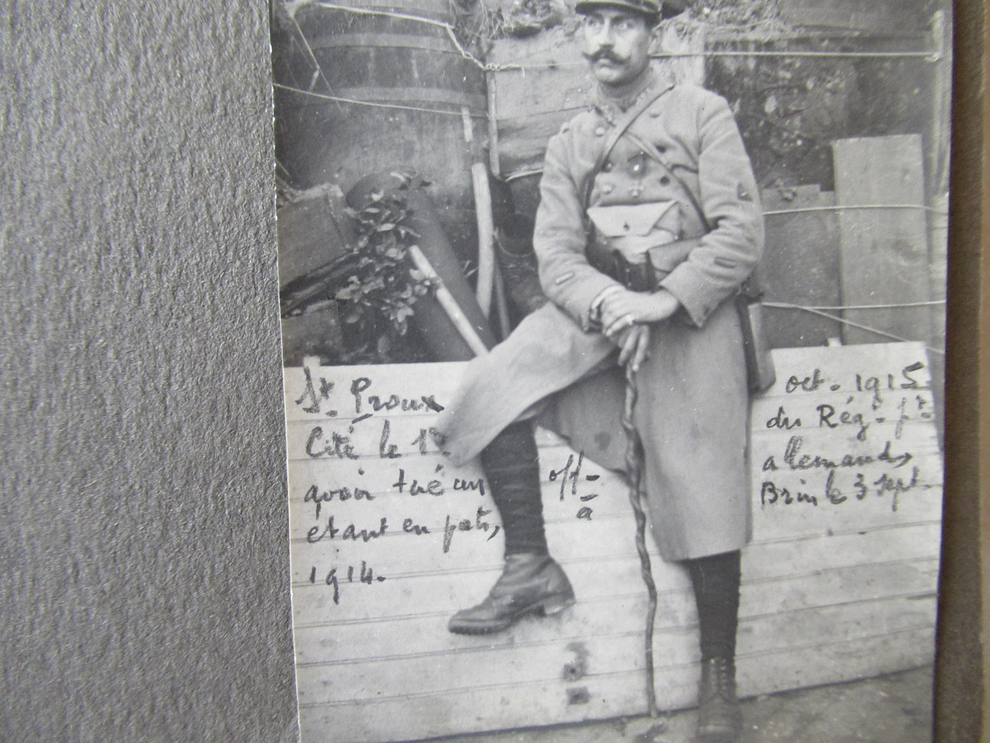 St Proux oct. 1915
Cité le 1er du Régt pr
avoir tué un off. allemand,
etant en patr, à Brin le 3 sept.
1914.